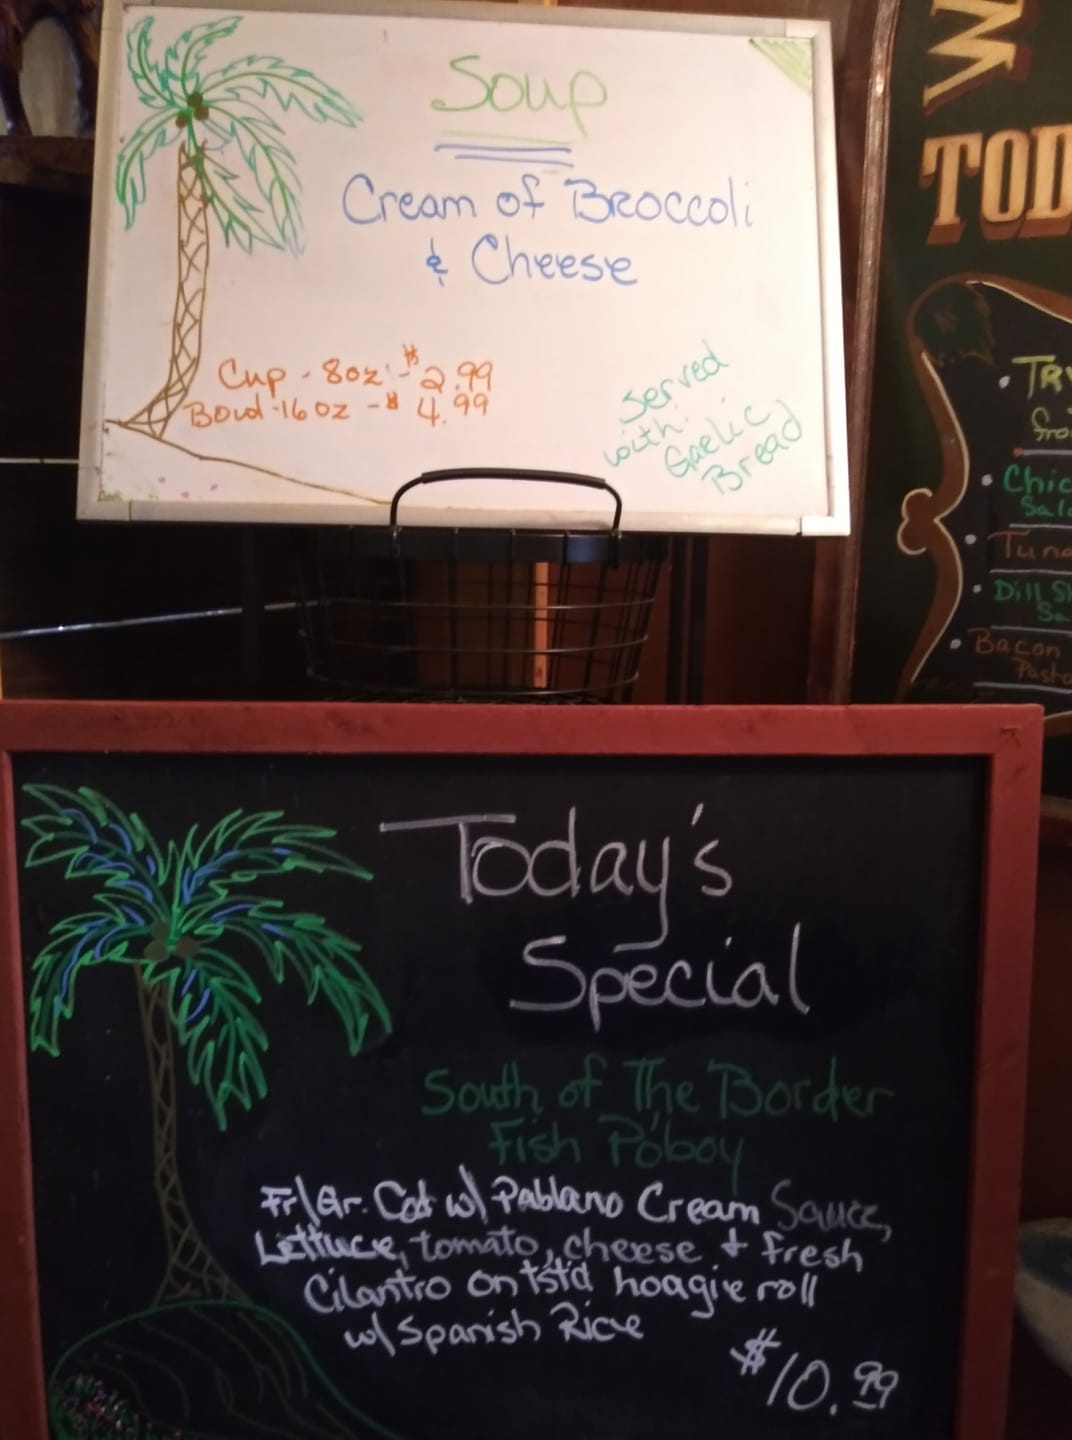 Soup
Cream of Broccoli
& Cheese
Cup - 8oz - $2.99
Bowl - 16 oz - $4.99
Served
with
Garlic
Bread
TOD
TRY
Chic
Sala
Tuna
Dill Sh
Sa
Bacon
Pasta
Today's
Special
South of The Border
Fish Po'boy
Fr/Gr. Cod w/ Pablano Cream Sauce,
Lettuce, tomato, cheese + fresh
Cilantro on tst'd hoagie roll
w/ Spanish Rice
$10.99